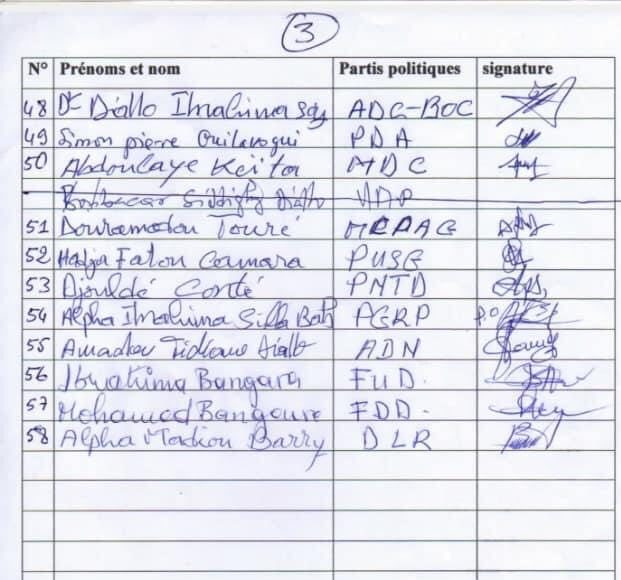 3
N° Prénoms et nom Partis politiques signature
48 Dr Diallo Ibrahima Sory ADC-BOC
49 Simon pierre PDA
50 Abdoulaye Keita MDC
51 Douramodou Touré
52 Hadja Fatou Camara PUSG
53 Djouldé Conté PNTD
54 Alpha Ibrahima Silla Bah PGRP P.O
55 Amadou Tidiane Diallo ADN
56 Ibrahima Bangara FUD.
57 Mohamed Bangoura FDD.
58 Alpha Madiou Barry DLR